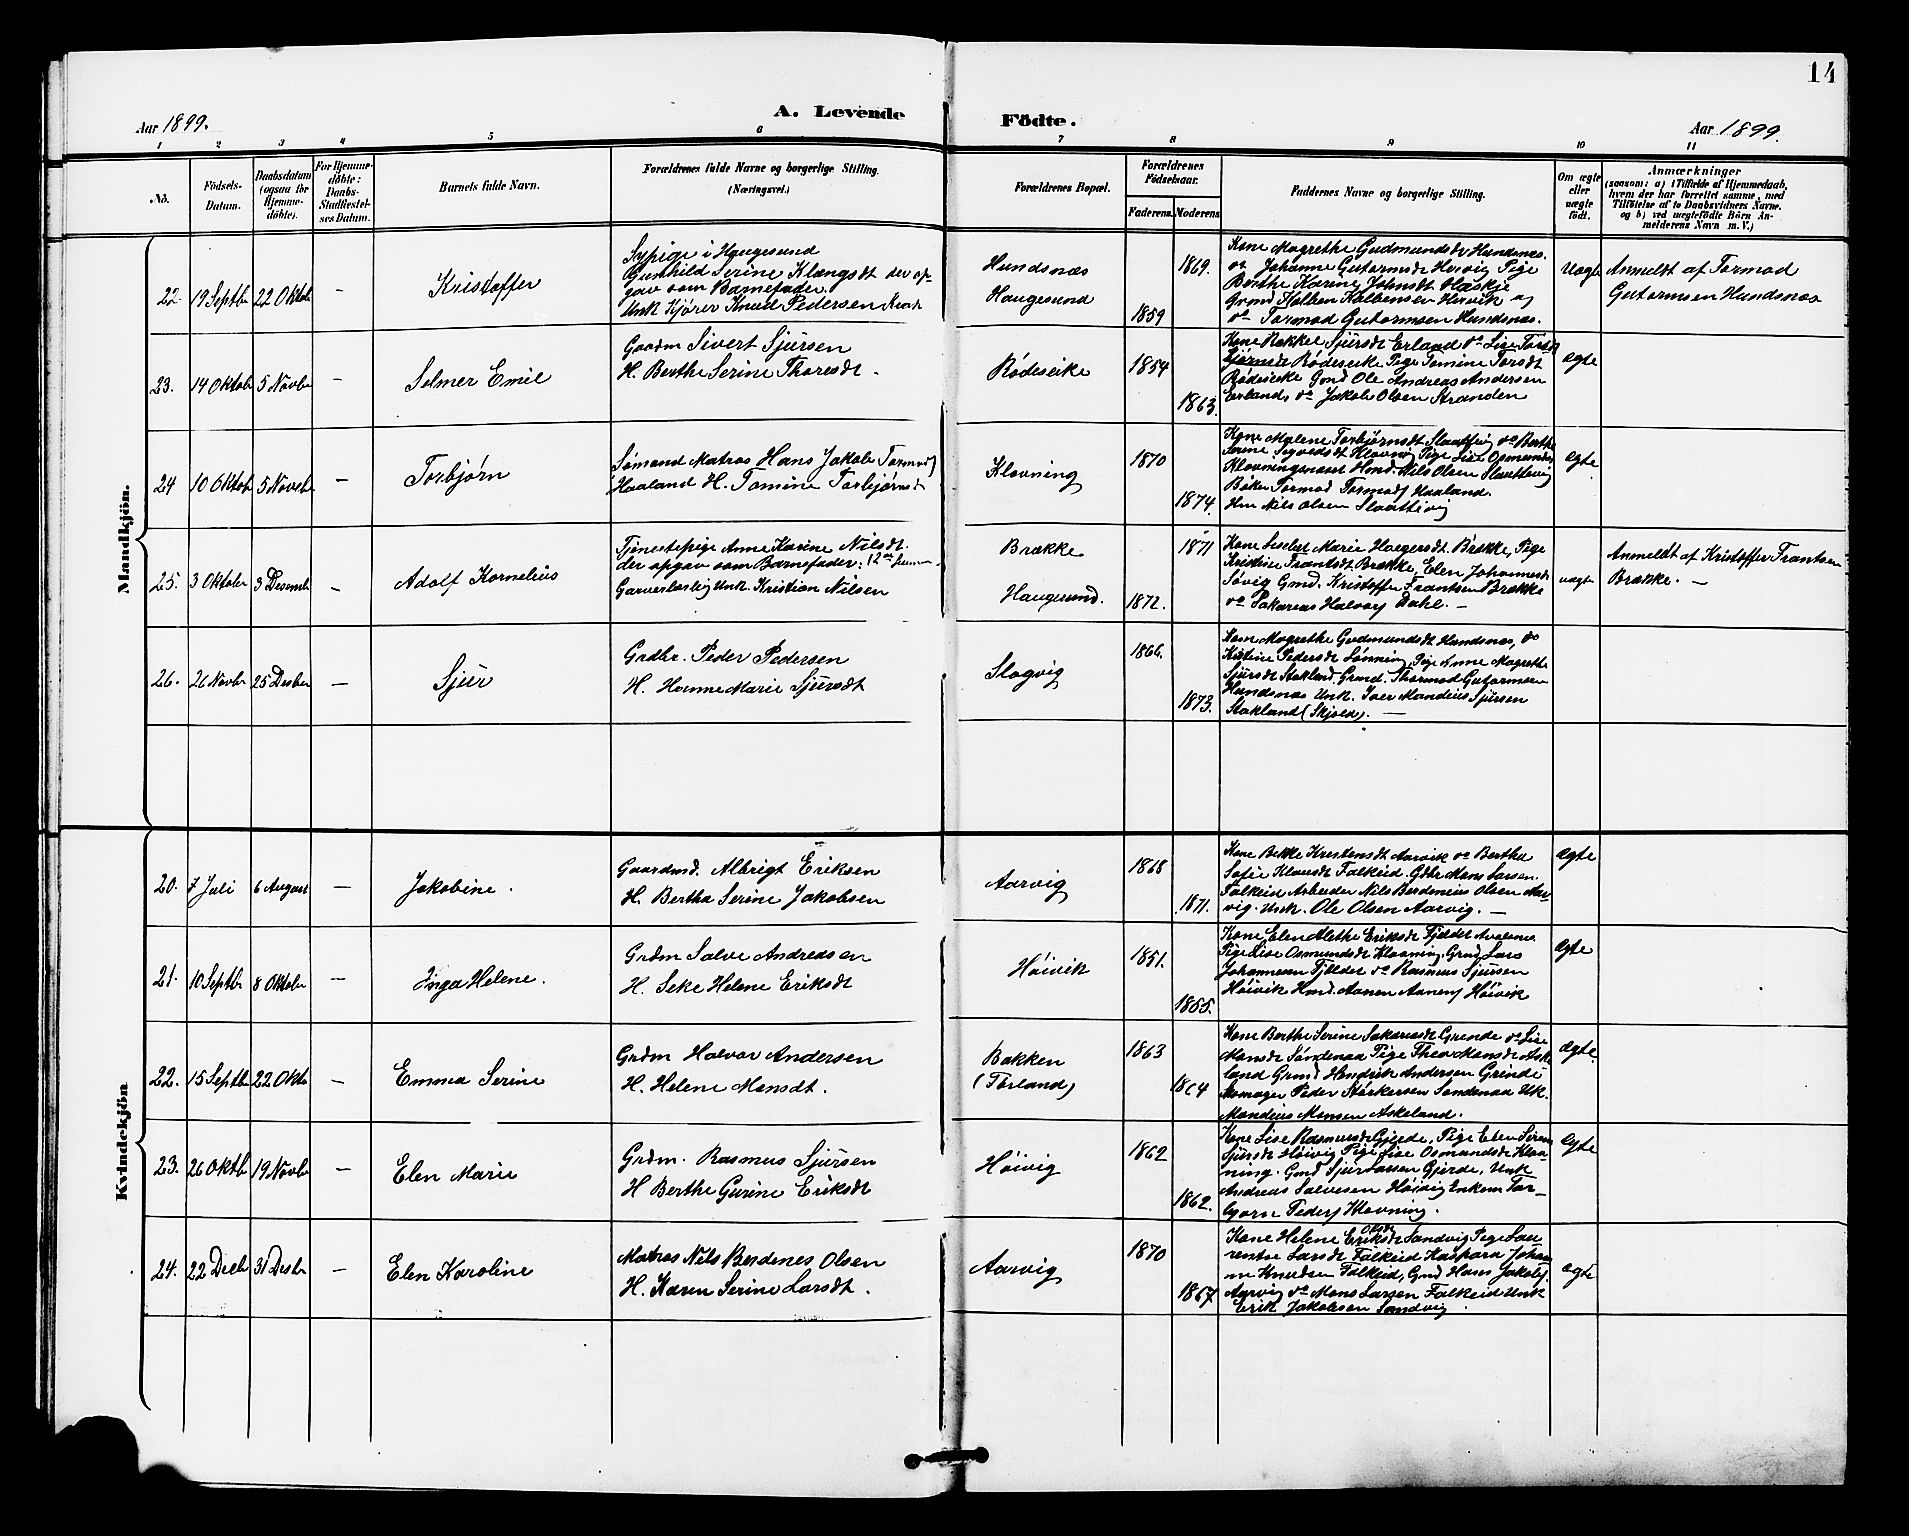 14
Aar 1899.
A. Levende Födte.
Aar 1899.
1 2 3 4 5 6 7 8 9 10 11
No.
Födsels-
Datum.
Daabsdatum
(ogsaa for
Hjemme-
döbte).
For Hjemme-
döbte:
Daabs-
Stadfæstel-
ses Datum.
Barnets fulde Navn.
Forældrenes fulde Navne og borgerlige Stilling.
(Næringsvei.)
Forældrenes Bopæl.
Forældrenes
Födselsaar.
Faderens.
Moderens
Faddernes Navne og borgerlige Stilling.
Om ægte
eller
uægte
født.
Anmærkninger
(saasom: a) i Tilfælde af Hjemmedaab,
hvem der har forrettet samme, med
Tilföielse af to Daabsvidners Navne.
og b) ved uægtefödte Börn An-
melderens Navn m. V.)
Mandkjön.
22. 19 Septb 22 Oktob — Kristoffer
Sypige i Haugesund
Gunhild Serine Klængsdt der op-
gav som Barnefader
Unk Kjører Knud Pedersen
Hundsnæs
Haugesund
1869.
1859
Kone Magrethe Gudmundsdt Hundsnæs.
do Johanne Gutormsdt Hervig Pige
Berthe Karine Johnsdt
Gmd Kolben Kolbensen Hervik og
do Tormod Gutormsen Hundsnæs.
Uægte
Anmeldt af Tormod
Gutormsen Hundsnæs
23. 14 Oktob 5 Novbr — Selmer Emil
Gaadm Sivert Sjursen
H. Berthe Serine Thoresdt.
Rødseike
1854
1863.
Kone Rakkel Sjursdt Erland do Lise Torb
bjørnsdt Rødseike Pige Tomine Torsdt
Rødseike Gmd Ole Andreas Andersen
Erland, do Jakob Olsen Stranden
ægte
24 10 Oktob 5 Novbr — Torbjørn
Sømand Matros Hans Jakob Tormods
Haaland H. Tomine Torbjørnsdt
Klovning
1870
1874.
Kone Malene Torbjørnsdt Slaattevig do Berthe
Serine Sigvedsdt Klovning Pige Lise Osmundsdt
Klovningsnæset Hmd. Nils Olsen Slaattevig
Tormod Tormods Haaland.
Hm Nils Olsen Slaattevig
ægte
25. 3 Oktober 3 Desemb — Adolf Kornelius
Tjenestepige Anne Karine Nilsdt.
der opgav som Barnefader:
Garverlærling Unk. Kristian Nilsen
Brække
Haugesund.
1871
1872.
Kone Liselest Marie Haagensdt Brække, Pige
Kristine Frantsdt Brække, Elen Johannesdt
Søvig Gmd. Kristoffer Frantsen Brække
do Sakarias Halvors Dahl. —
uægte
Anmeldt af Kristoffer Frantsen
Brække. —
26. 26 Novbr 25 Desbr — Sjur
Grdbr. Peder Pedersen
H. Hanne Marie Sjursdt
Slogvig
1866.
1873.
Kone Magrethe Gudmundsdt Hundsnæs, do
Kistine Pedersdt Lønning, Pige Anne Magrethe
Sjursdt Stakland. Grmd. Thormod Gutormsen
Hundsnæs Unk. Iver Mandius Sjursen
Stakland (Skjold). —
Kvindekjön
20. 7 Juli 6 August — Jakobine.
Gaardmd. Albrigt Eriksen
H. Bertha Serine Jakobsen
Aarvig
1868
1871.
Kone Bekke Kristensdt Aarvik do Bertha
Sofie Klausdt Falkeid Gdbr Mons Larsen
Falkeid Arbeider Nils Berdinius Olsen Aar-
vig. Unk. Ole Olsen Aarvig. —
ægte
21. 10 Septb 8 Oktober — Inga Helene.
Grdm Salve Andreasen
H. Seke Helene Eriksdt
Höivik
1851.
1855.
Kone Elen Alethe Eriksdt Fjeldet
Pige Lise Osmundsdt Klovning. Grmd Lars
Johannesen Fjeldet do Rasmus Sjursen
Höivik Hmd. Aanen Aanens Höivik
ægte
22. 15 Septbr 22 Okt — Emma Serine
Grdm Halvor Andersen
H. Helene Monsdt.
Bakken
(Førland)
1863
1864
Kone Berthe Serine Sakariasdt Grinde do Lise
Monsdt Søndenaa Pige Thea Monsdt Aske-
land Grmd Hendrik Andersen Grinde
Skomager Peder Størkersen Søndenaa Uk.
Mandius Monsen Askeland.
ægte
23. 26 Oktb 19 Novbr — Elen Marie
Grdm. Rasmus Sjursen
H Berthe Gurine Eriksdt
Höivig
1862
1862.
Kone Lise Rasmusdt Gjerde, Pige Elen Sirene
Sjursdt Höivig Pige Lise Osmundsdt Klov-
ning. Gmd Sjur Larsen Gjerde, Unk
Andreas Salvesen Höivig Enkem Tor-
bjørn Peders Klovning.
ægte
24. 22 Decb 31 Desbr — Elen Karoline
Matros Nils Berdines Olsen
H. Karen Serine Larsdt.
Aarvig
1870
1867
Kone Helene Eriksdt Olsdt Sandvig Pige Lau-
rentse Larsdt Falkeid Kaspara Johan-
ne Knudsen Falkeid, Gmd Hans Jakobs.
Aarvig do Mons Larsen Falkeid Unk
Erik Jakobsen Sandvig.
ægte